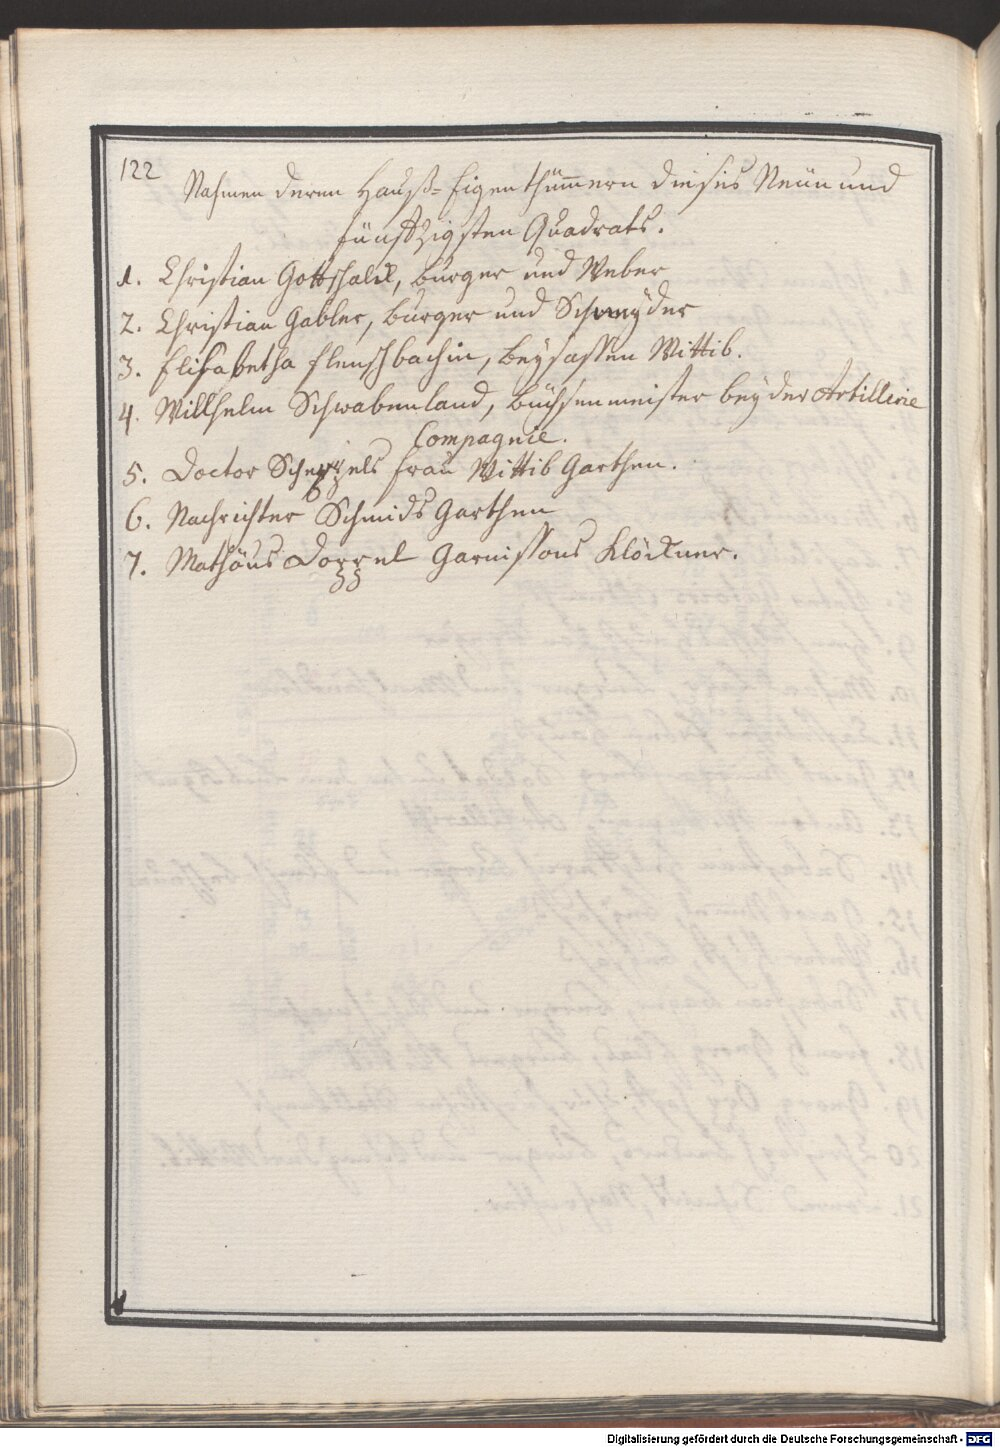 122
Nahmen deren Hauß-Eigenthümmern dieses Neün und
fünffzigsten Quadrats.
1. Christian Gottschalck, burger und Weber
2. Christian Gabler, burger und Schneyder
3. Elisabetha flenschbachin, beysassen Wittib.
4. Willhelm Schwabenland, büchsenmeister bey der Artillerie
Compagnie.
5. Doctor frau Wittib Garthen.
6. Nachrichter Schmids Garthen
7. Mathäus Garnissons Klöckner.
Digitalisierung gefördert durch die Deutsche Forschungsgemeinschaft - DFG